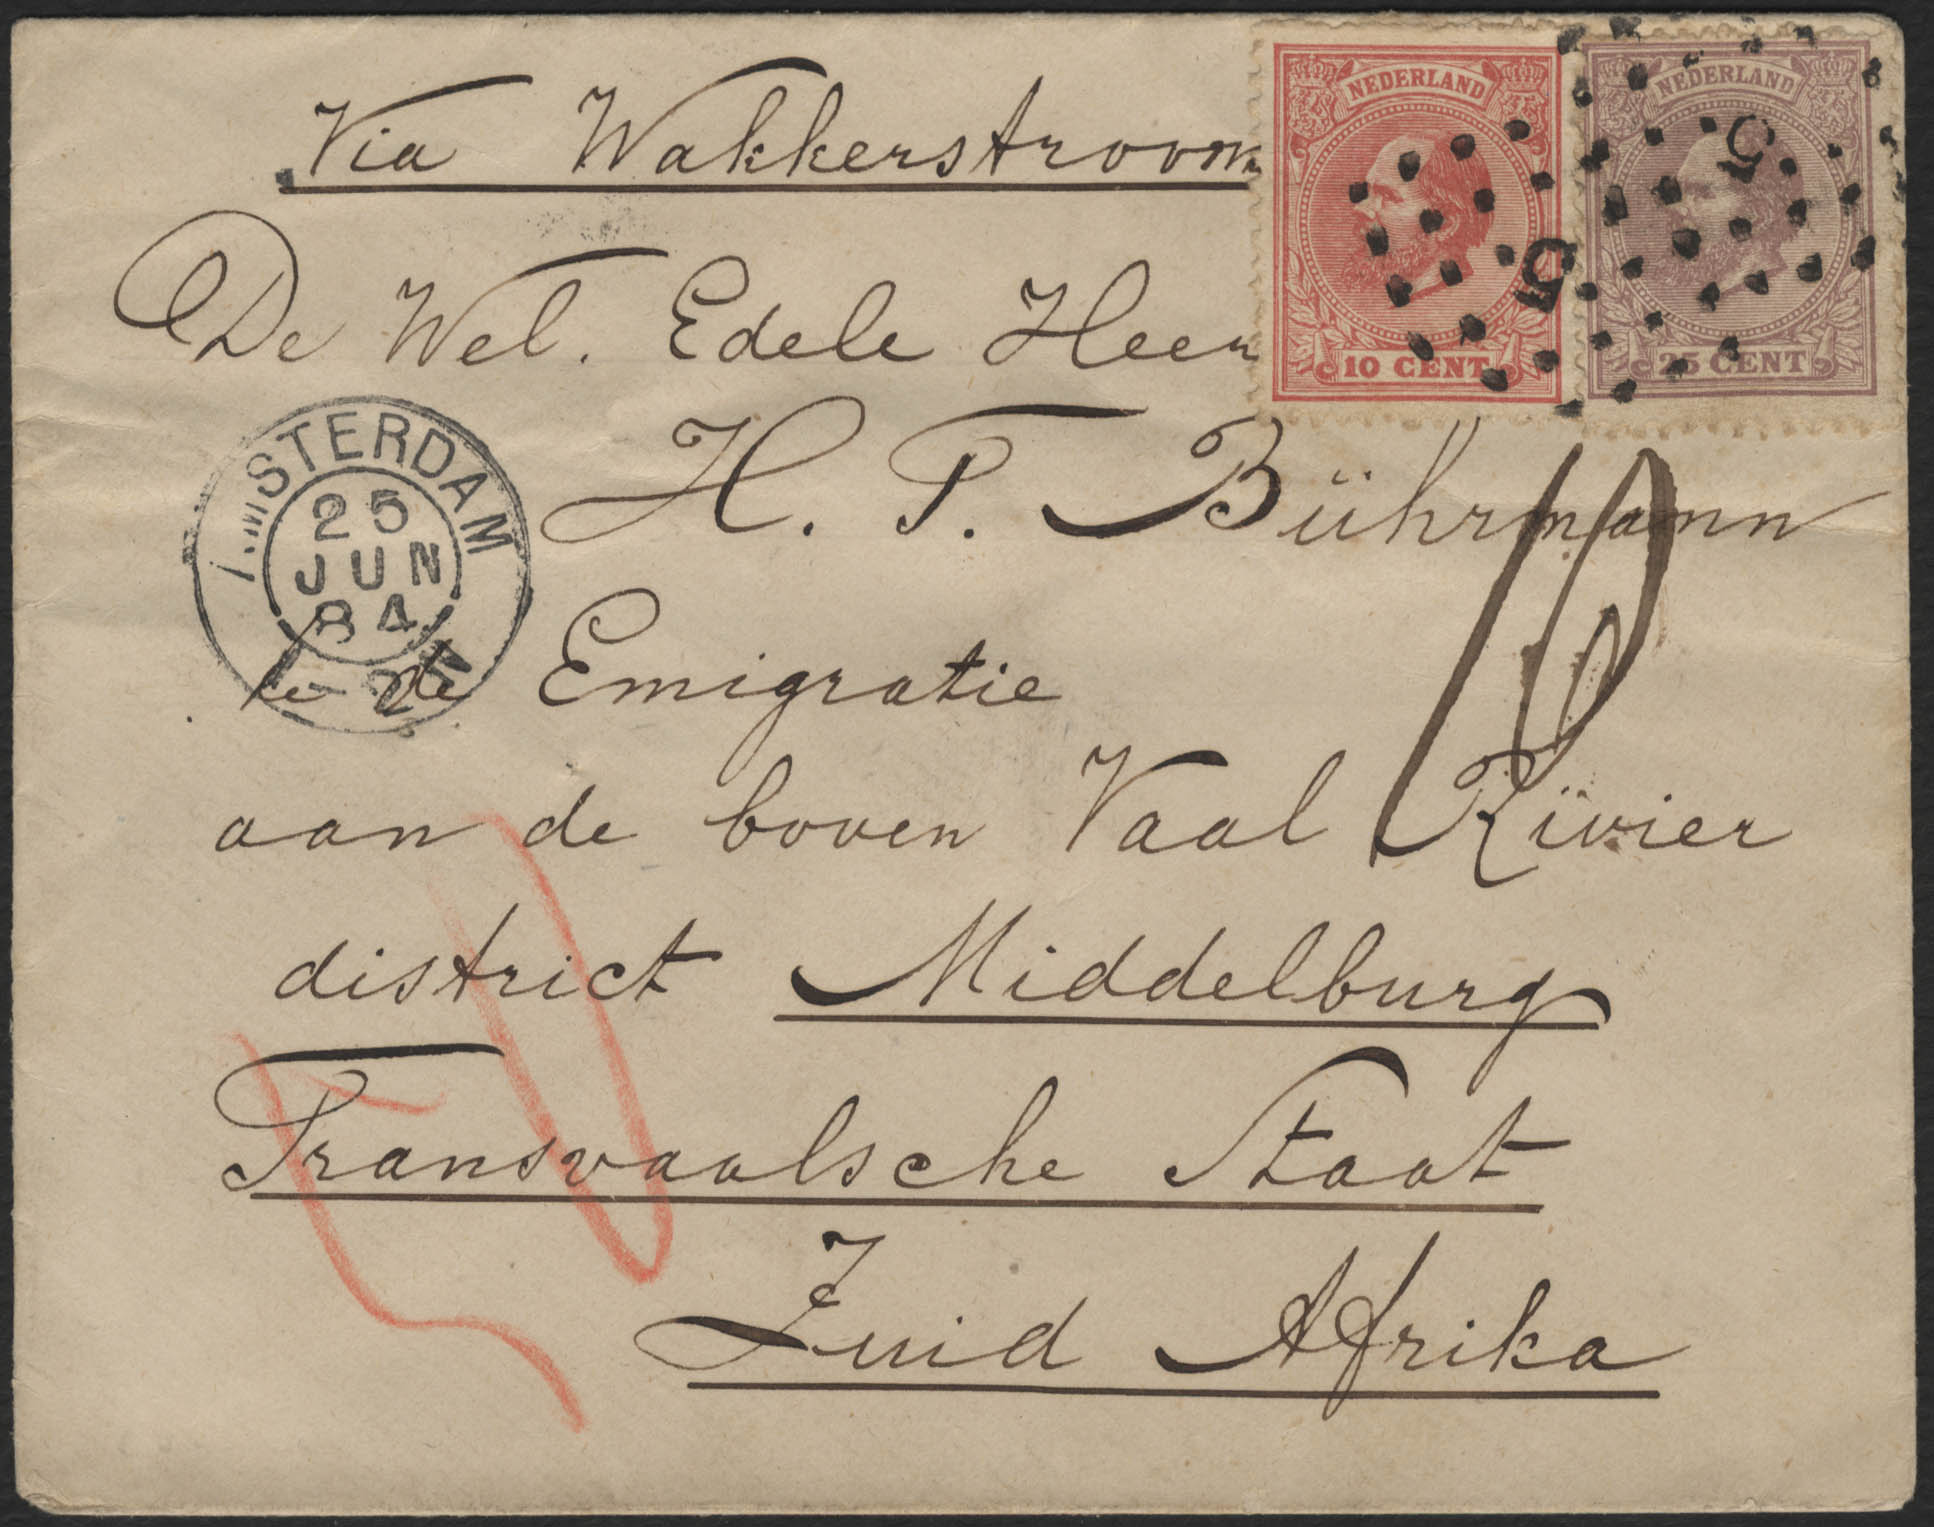 Via Wakkerstroom
NEDERLAND
10 CENT
5
NEDERLAND
25 CENT
5
De Wel. Edele Heer
H. T. Bührmann
AMSTERDAM
25
JUN
84
te de Emigratie
aan de boven Vaal Rivier
district Middelburg
Transvaalsche Staat
Zuid Afrika